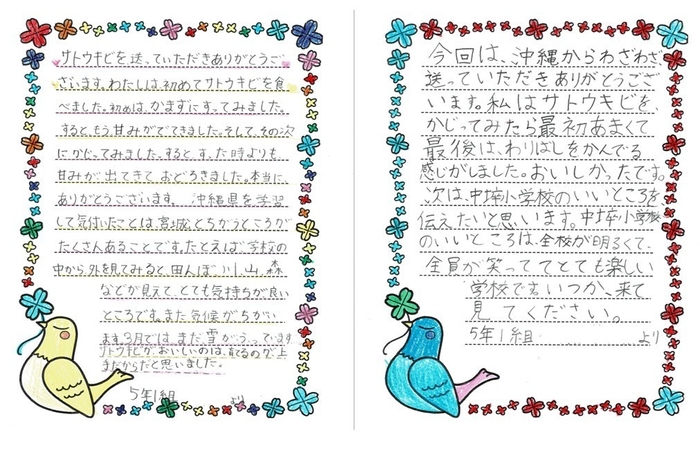 サトウキビを送っていただきありがとうご
ざいます。わたしは、初めてサトウキビを食
べました。初めは、かまずにすってみました。
するともう甘みがでてきました。そして、その次
にかじってみました。すると、すった時よりも
甘みが出てきておどろきました。本当に、
ありがとうございます。沖縄県を学習
して気付いたことは、宮城とちがうところが
たくさんあることです。たとえば、学校の
中から外を見てみると、田んぼ、川、山、森
などが見えて、とても気持ちが良い
ところです。また気候がちがい
ます。3月では、まだ雪がふっています
サトウキビがおいしいのは、育てるのが上
手だからだと思いました。
5年1組 より
今回は、沖縄からわざわざ
送っていただきありがとうござ
います。私はサトウキビを、
かじってみたら最初あまくて
最後は、わりばしをかんでる
感じがしました。おいしかったです。
次は、中埣小学校のいいところを
伝えたいと思います。中埣小学校
のいいところは、全校が明るくて、
全員が笑っててとても楽しい
学校です。いつか、来て
見てください。
5年1組 より